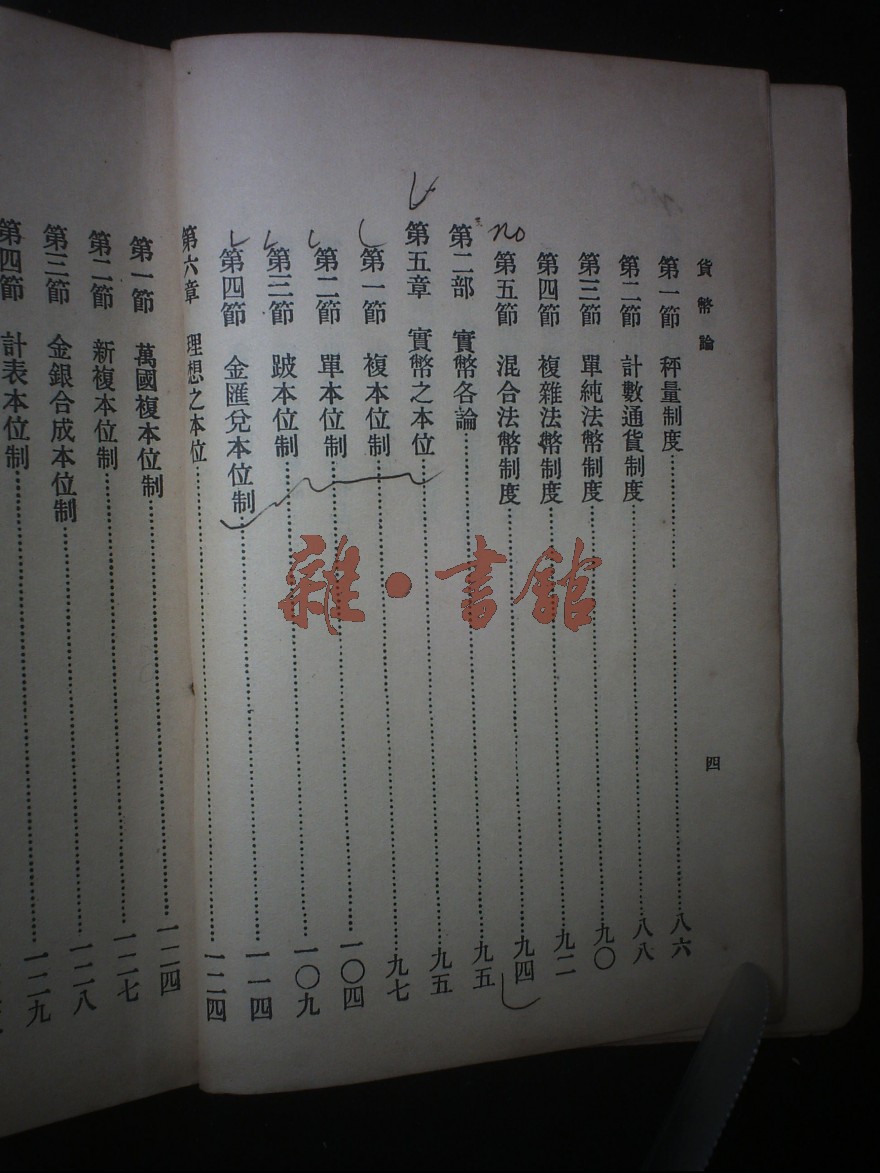 貨幣論
四
第一節 秤量制度 八六
第二節 計數通貨制度 八八
第三節 單純法幣制度 九〇
第四節 複雜法幣制度 九二
no
第五節 混合法幣制度 九四
第二部 實幣各論 九五
第五章 實幣之本位 九五
第一節 複本位制 九七
第二節 單本位制 一〇四
第三節 跛本位制 一〇九
第四節 金匯兌本位制 一一四
第六章 理想之本位 一二四
第一節 萬國複本位制 一二四
第二節 新複本位制 一二七
第三節 金銀合成本位制 一二八
第四節 計表本位制 一二九
雜·書館